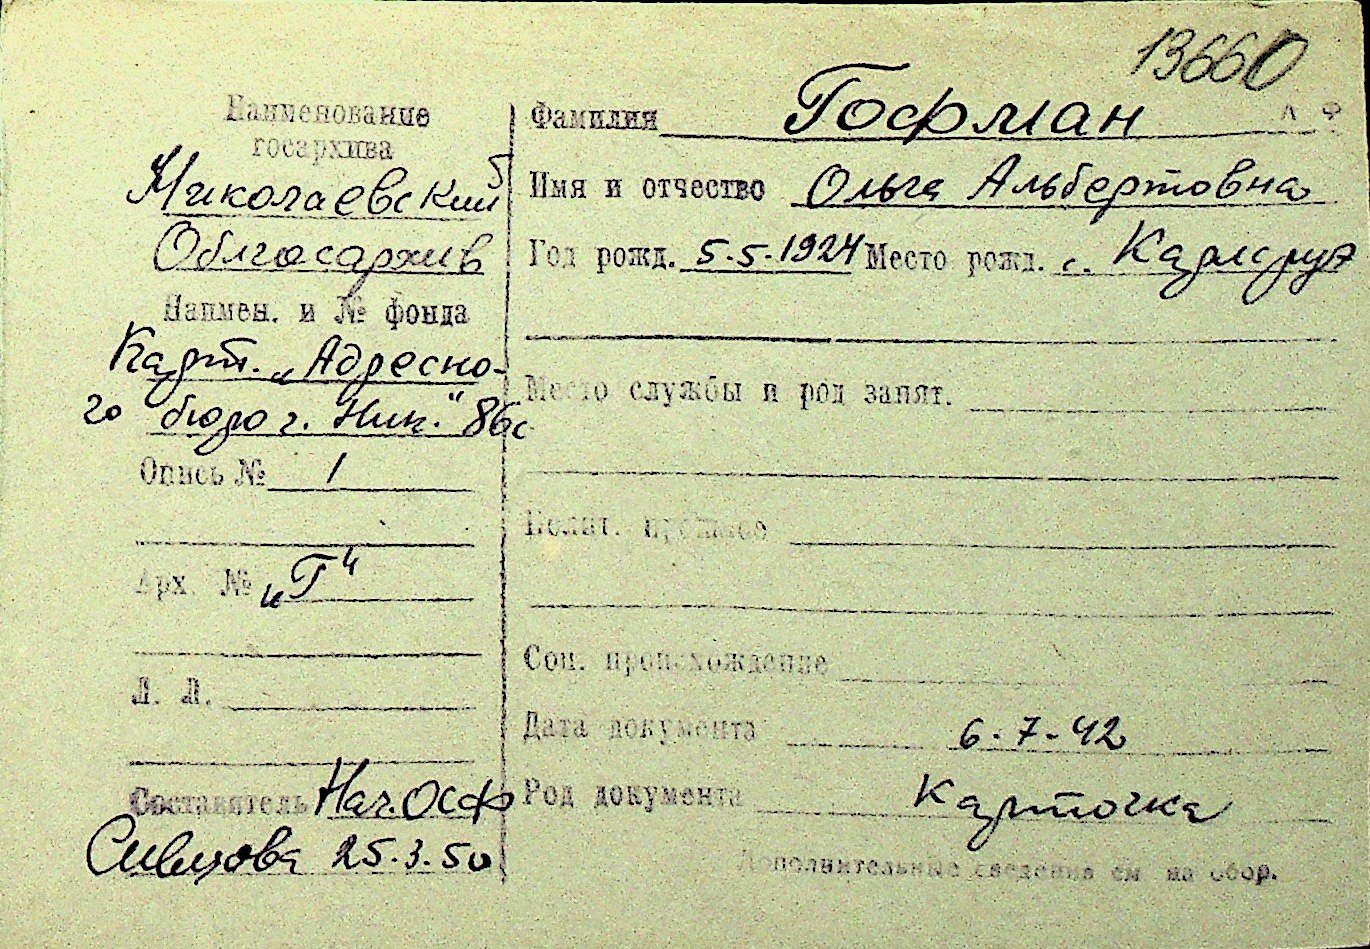 13660
Наименование
госархива
Николаевский
Облгосархив
Наимен. и № фонда
Карт. „Адресно-
го бюро г. Ник." 86с
Опись № 1
Арх. № „Г"
Л. Л.
Составитель Нач. ОСФ
25.3.50
Фамилия Гофман
Имя и отчество Ольга Альбертовна
Год рожд. 5.5.1924 Место рожд. с. Карлсруэ
Место службы и род занят.
Полит. прошлое
Соц. происхождение
Дата документа 6-7-42
Род документа Карточка
Дополнительные сведения см на обор.